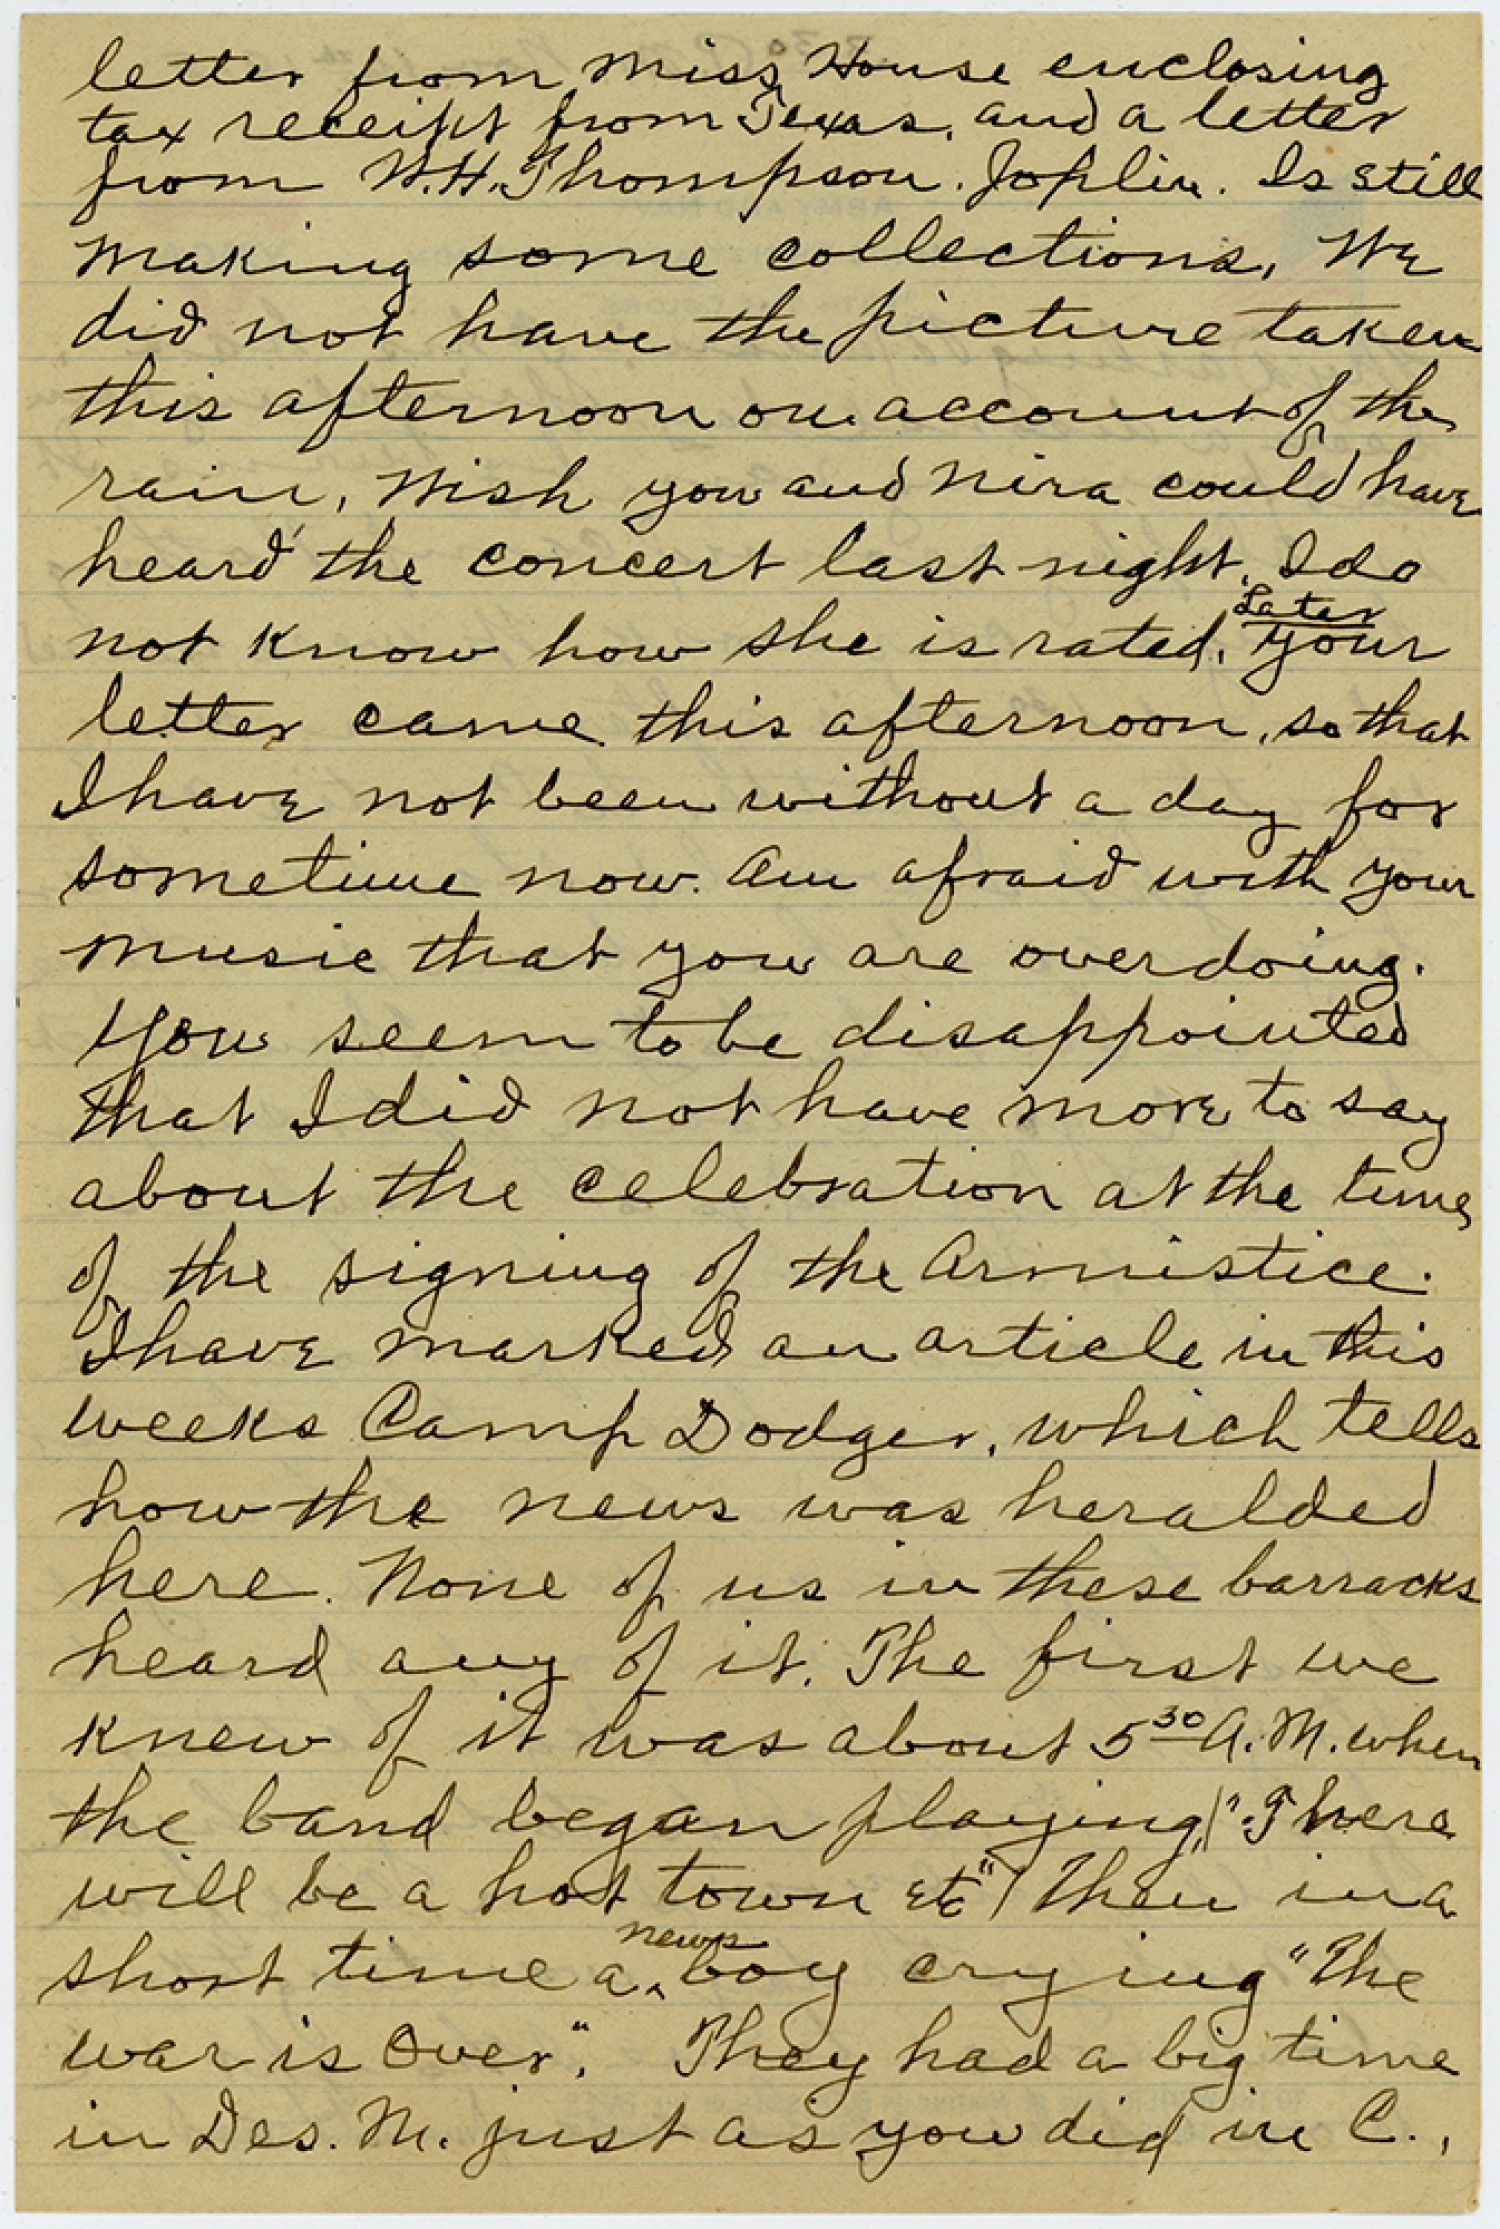 letter from Miss House enclosing
tax receipt from Texas, and a letter
from W.H. Thompson. Joplin. Is still
making some collections, We
did not have the picture taken
this afternoon on account of the
rain, Wish you and Nira could have
heard the concert last night. I do
not know how she is rated, Later Your
letter came this afternoon, so that
I have not been without a day for
sometime now. Am afraid with your
music that you are overdoing.
You seem to be disappointed
that I did not have more to say
about the celebration at the time
of the signing of the Armistice.
I have marked an article in this
weeks Camp Dodger, which tells
how the news was heralded
here. None of us in these barracks
heard any of it. The first we
knew of it was about 5 30 A.M. when
the band began playing, ("There
will be a hot town etc") Then in a
short time a news boy crying "The
war is over". They had a big time
in Des. M. just as you did in C.,